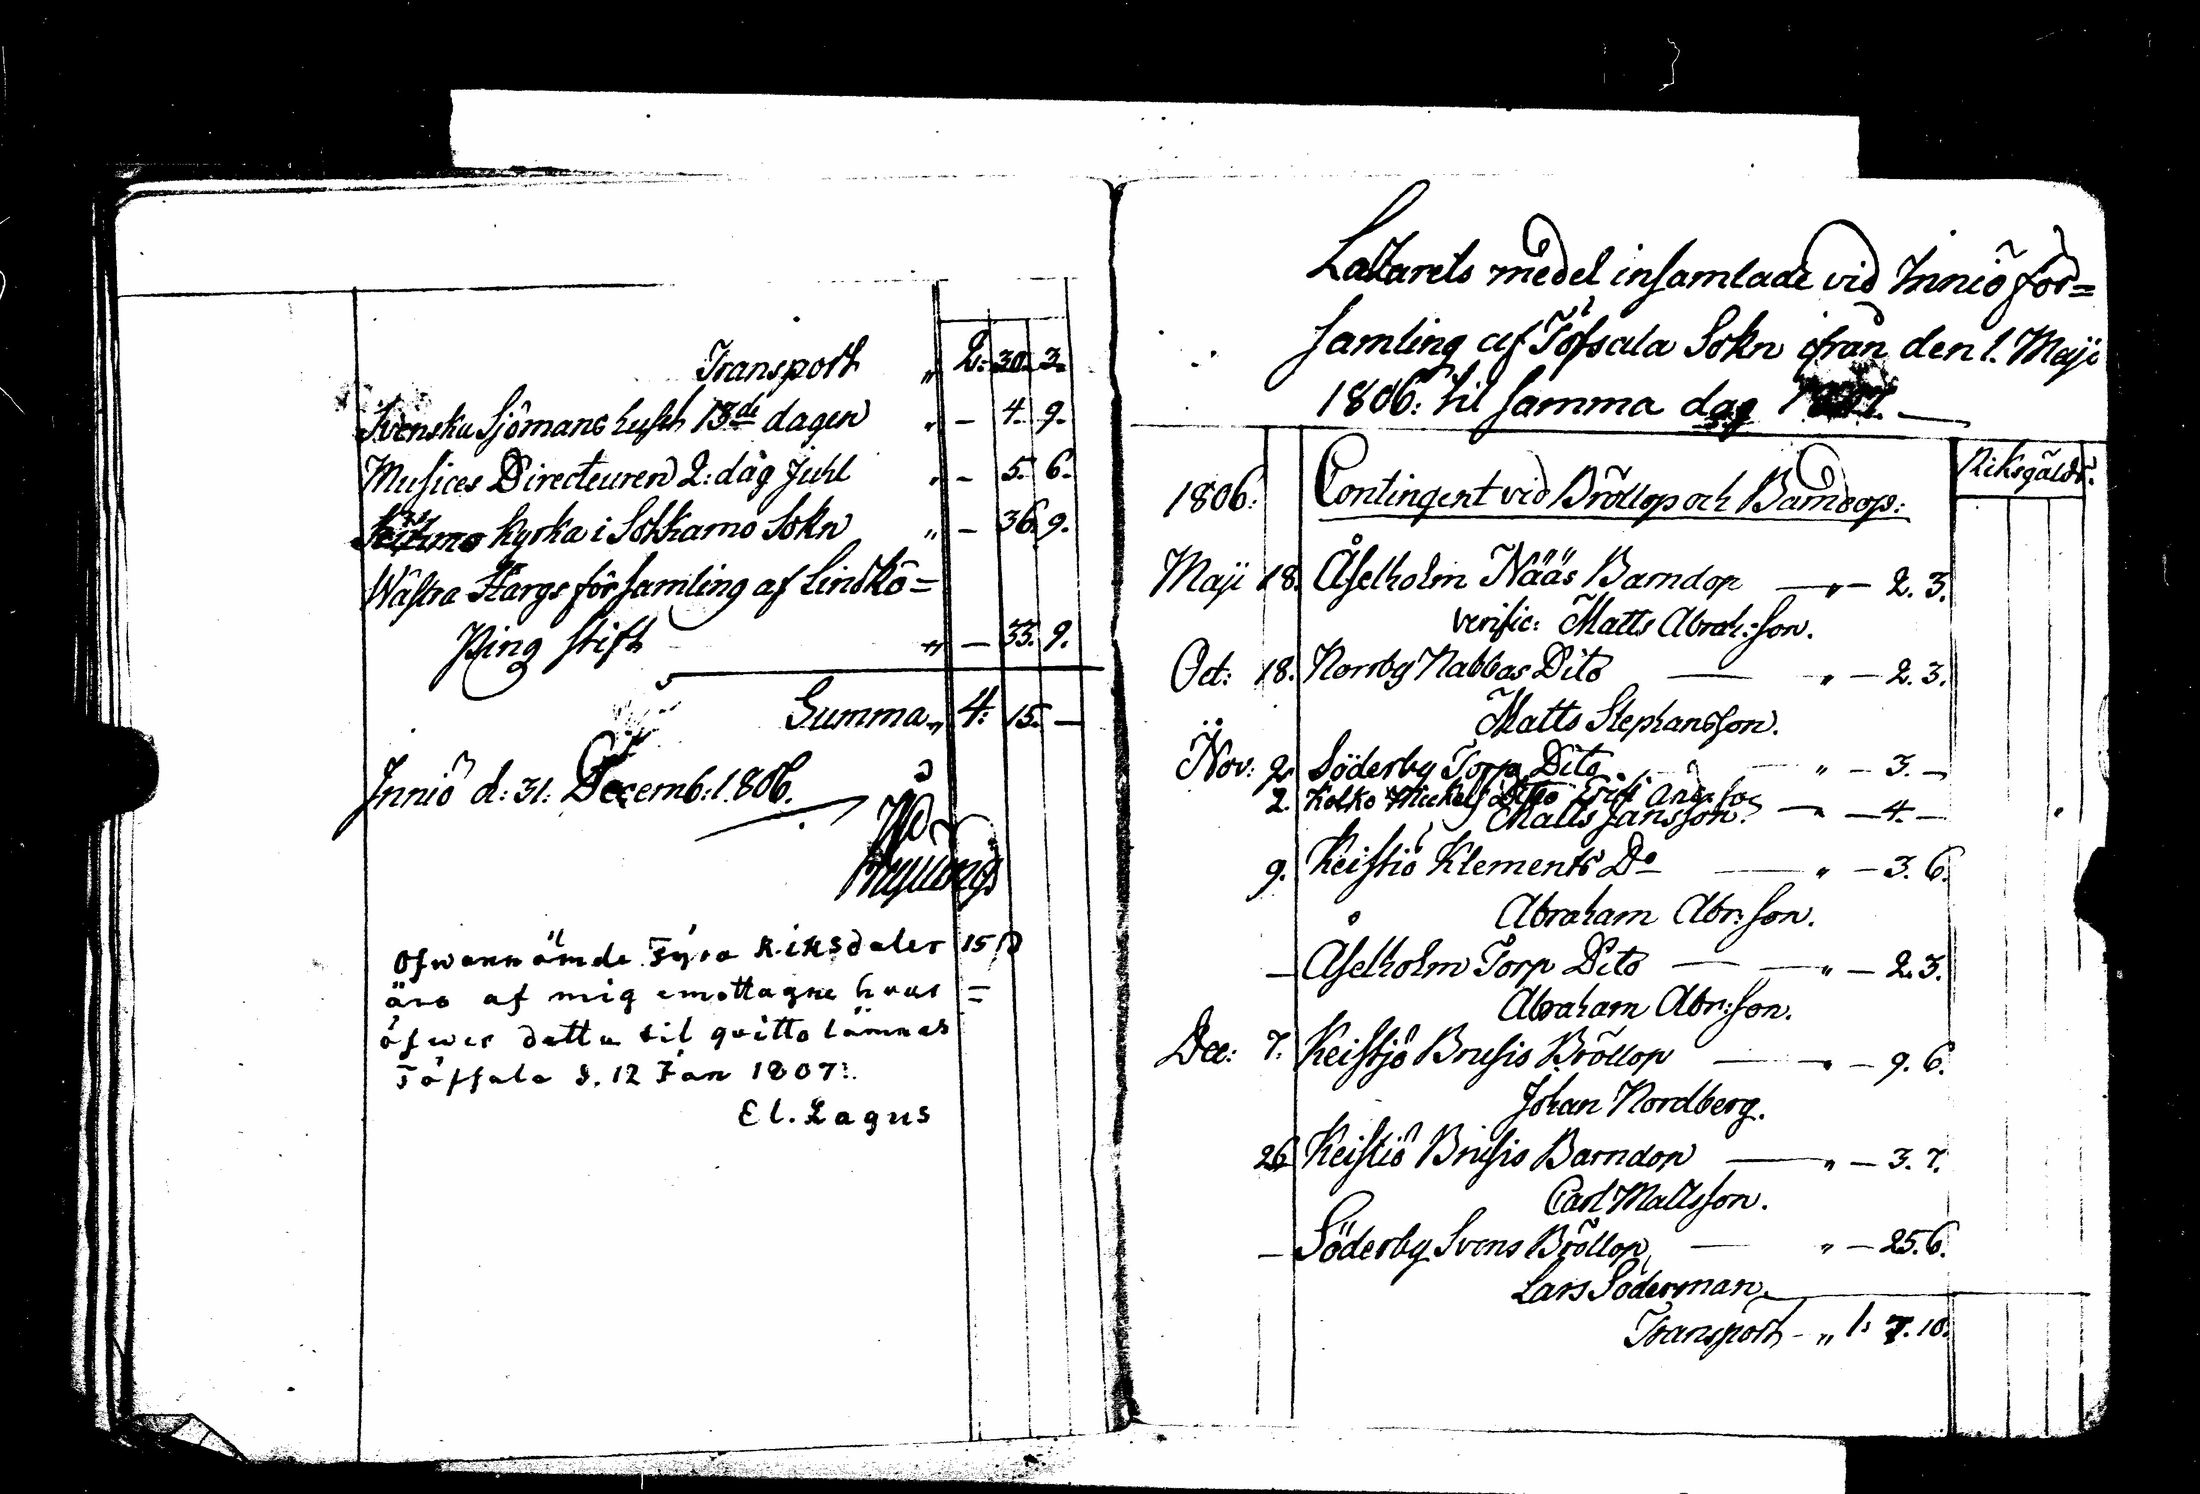 Transport " 2: 30. 3.
Svenska Sjömans huset 13de dagen " - 4. 9.
Musices Directeuren 2: dag Juhl " - 5. 6.
Kyrka i Sotkamo Sokn " - 36. 9.
Wästra Hargs församling af Lindkö=
Ping stift " - 33. 9.
Summa " 4: 15. -
Iniö d: 31: Decemb: 1806.
Ofwannämde Fyra Riksdaler 15 ß
äro af mig emottagne hwar =
öfwer detta til qvitto lämnas
Töffsala d. 12 Jan 1807.
El. Lagus
Lazarets medel insamlade vid Inniö för=
samling af Töfsala Sokn ifrån den 1. Maji
1806: til samma dag
Riksgälds.
1806: Contingent vid Bröllop och Barndop:
Maji 18. Åselholm Nääs Barndop — " — 2. 3.
verific: Matts Abrah:son.
Oct: 18. Norrby Nabbas Dito — " — 2. 3.
Matts Stephansson.
Nov: 2. Söderby Torpa Dito — " — 3. —
2. Kolko Mickels Dito — " — 4. —
Matts Jansson.
9. Keistiö Klements Do — " — 3. 6.
Abraham Abr:son.
— Åselholm Torp Dito — " — 2. 3.
Abraham Abr:son.
Dec: 7. Keistjö Brusis Bröllop — " — 9. 6.
Johan Nordberg.
26 Keistiö Brusis Barndop — " — 3. 7.
Carl Mattsson.
— Söderby Svens Bröllop — " — 25. 6.
Lars Söderman.
Transport - " 1: 7. 10.